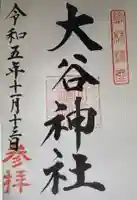 大谷神社
令和五年十一月十三日
参拝